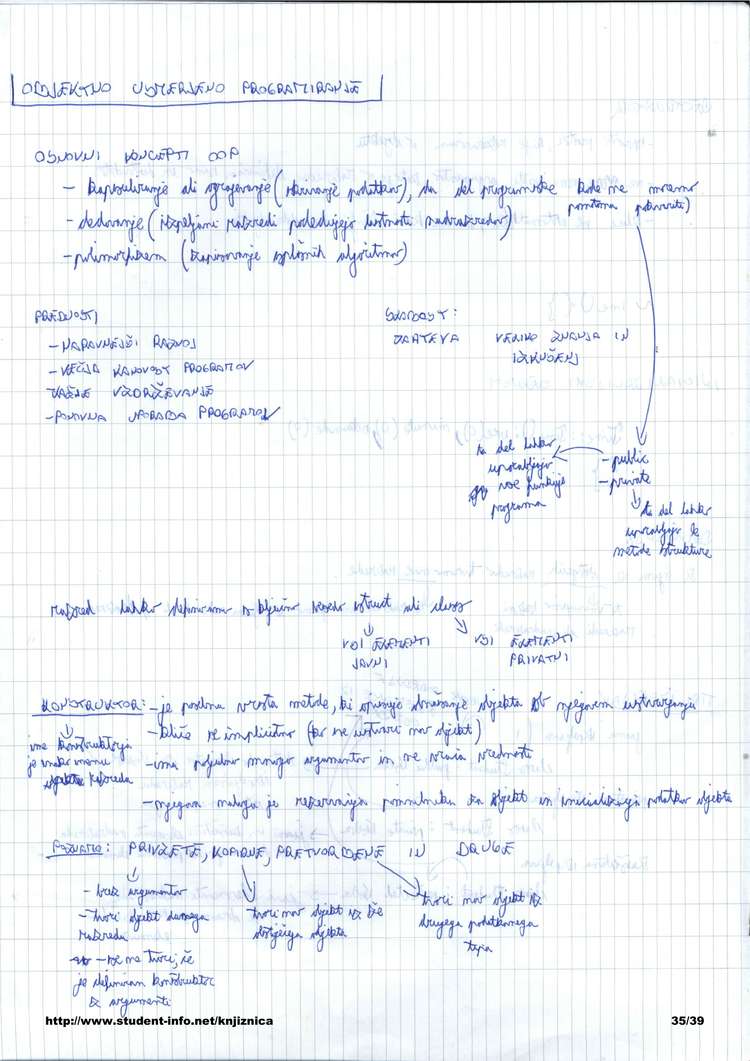 OBJEKTNO USMERJENO PROGRAMIRANJE
OSNOVNI KONCEPTI OOP
- kapsuliranje ali ograjevanje (skrivanje podatkov), da del programske kode ne moremo
pomotoma pokvariti)
- dedovanje (izpeljani razredi podedujejo lastnosti nadrazredov)
- polimorfizem (zapisovanje splošnih algoritmov)
PREDNOSTI
- NARAVNEJŠI RAZVOJ
- VEČJA KAKOVOST PROGRAMOV
LAŽJE VZDRŽEVANJE
- PONOVNA UPORABA PROGRAMOV
SLABOST:
ZAHTEVA VELIKO ZNANJA IN
IZKUŠENJ
- public
- private
ta del lahko
uporabljajo
vse funkcije
programa
ta del lahko
uporabljajo le
metode strukture
razred lahko definiramo s ključno besedo struct ali class
VSI ELEMENTI
JAVNI
VSI ELEMENTI
PRIVATNI
KONSTRUKTOR: - je posebna vrsta metode, ki opisuje obnašanje objekta ob njegovem ustvarjanju
- kliče se implicitno (ko se ustvari nov objekt)
- ima poljubno mnogo argumentov in ne vrača vrednosti
- njegova naloga je rezervacija pomnilnika za objekt in inicializacija podatkov objekta
ime konstruktorja
je enako imenu
razreda
POZNAMO: PRIVZETE, KOPIRNE, PRETVORBENE IN DRUGE
- brez argumentov
- tvori objekt danega
razreda
- se ne tvori, če
je definiran konstruktor
z argumenti
tvori nov objekt iz že
obstoječega objekta
tvori nov objekt iz
drugega podatkovnega
tipa
http://www.student-info.net/knjiznica
35/39